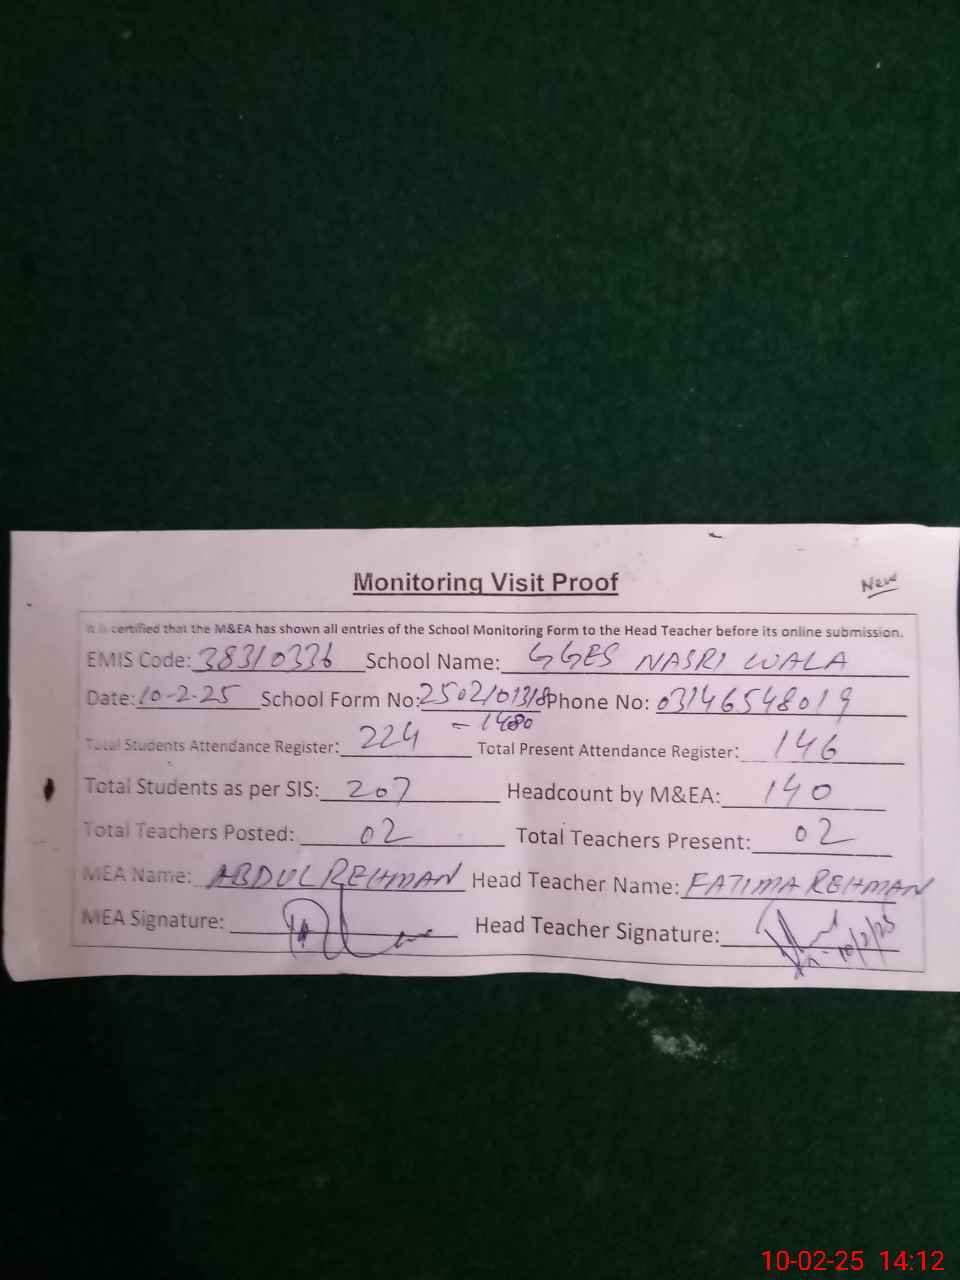 Monitoring Visit Proof
New
It is certified that the M&EA has shown all entries of the School Monitoring Form to the Head Teacher before its online submission.
EMIS Code: 38310336 School Name: GGES NASRI WALA
Date: 10-2-25 School Form No: 2502101318 Phone No: 03146548019
- 1480
Total Students Attendance Register: 224 Total Present Attendance Register: 146
Total Students as per SIS: 207 Headcount by M&EA: 140
Total Teachers Posted: 02 Total Teachers Present: 02
MEA Name: ABDUL REHMAN Head Teacher Name: FATIMA REHMAN
MEA Signature: Head Teacher Signature: 10/2/25
10-02-25 14:12